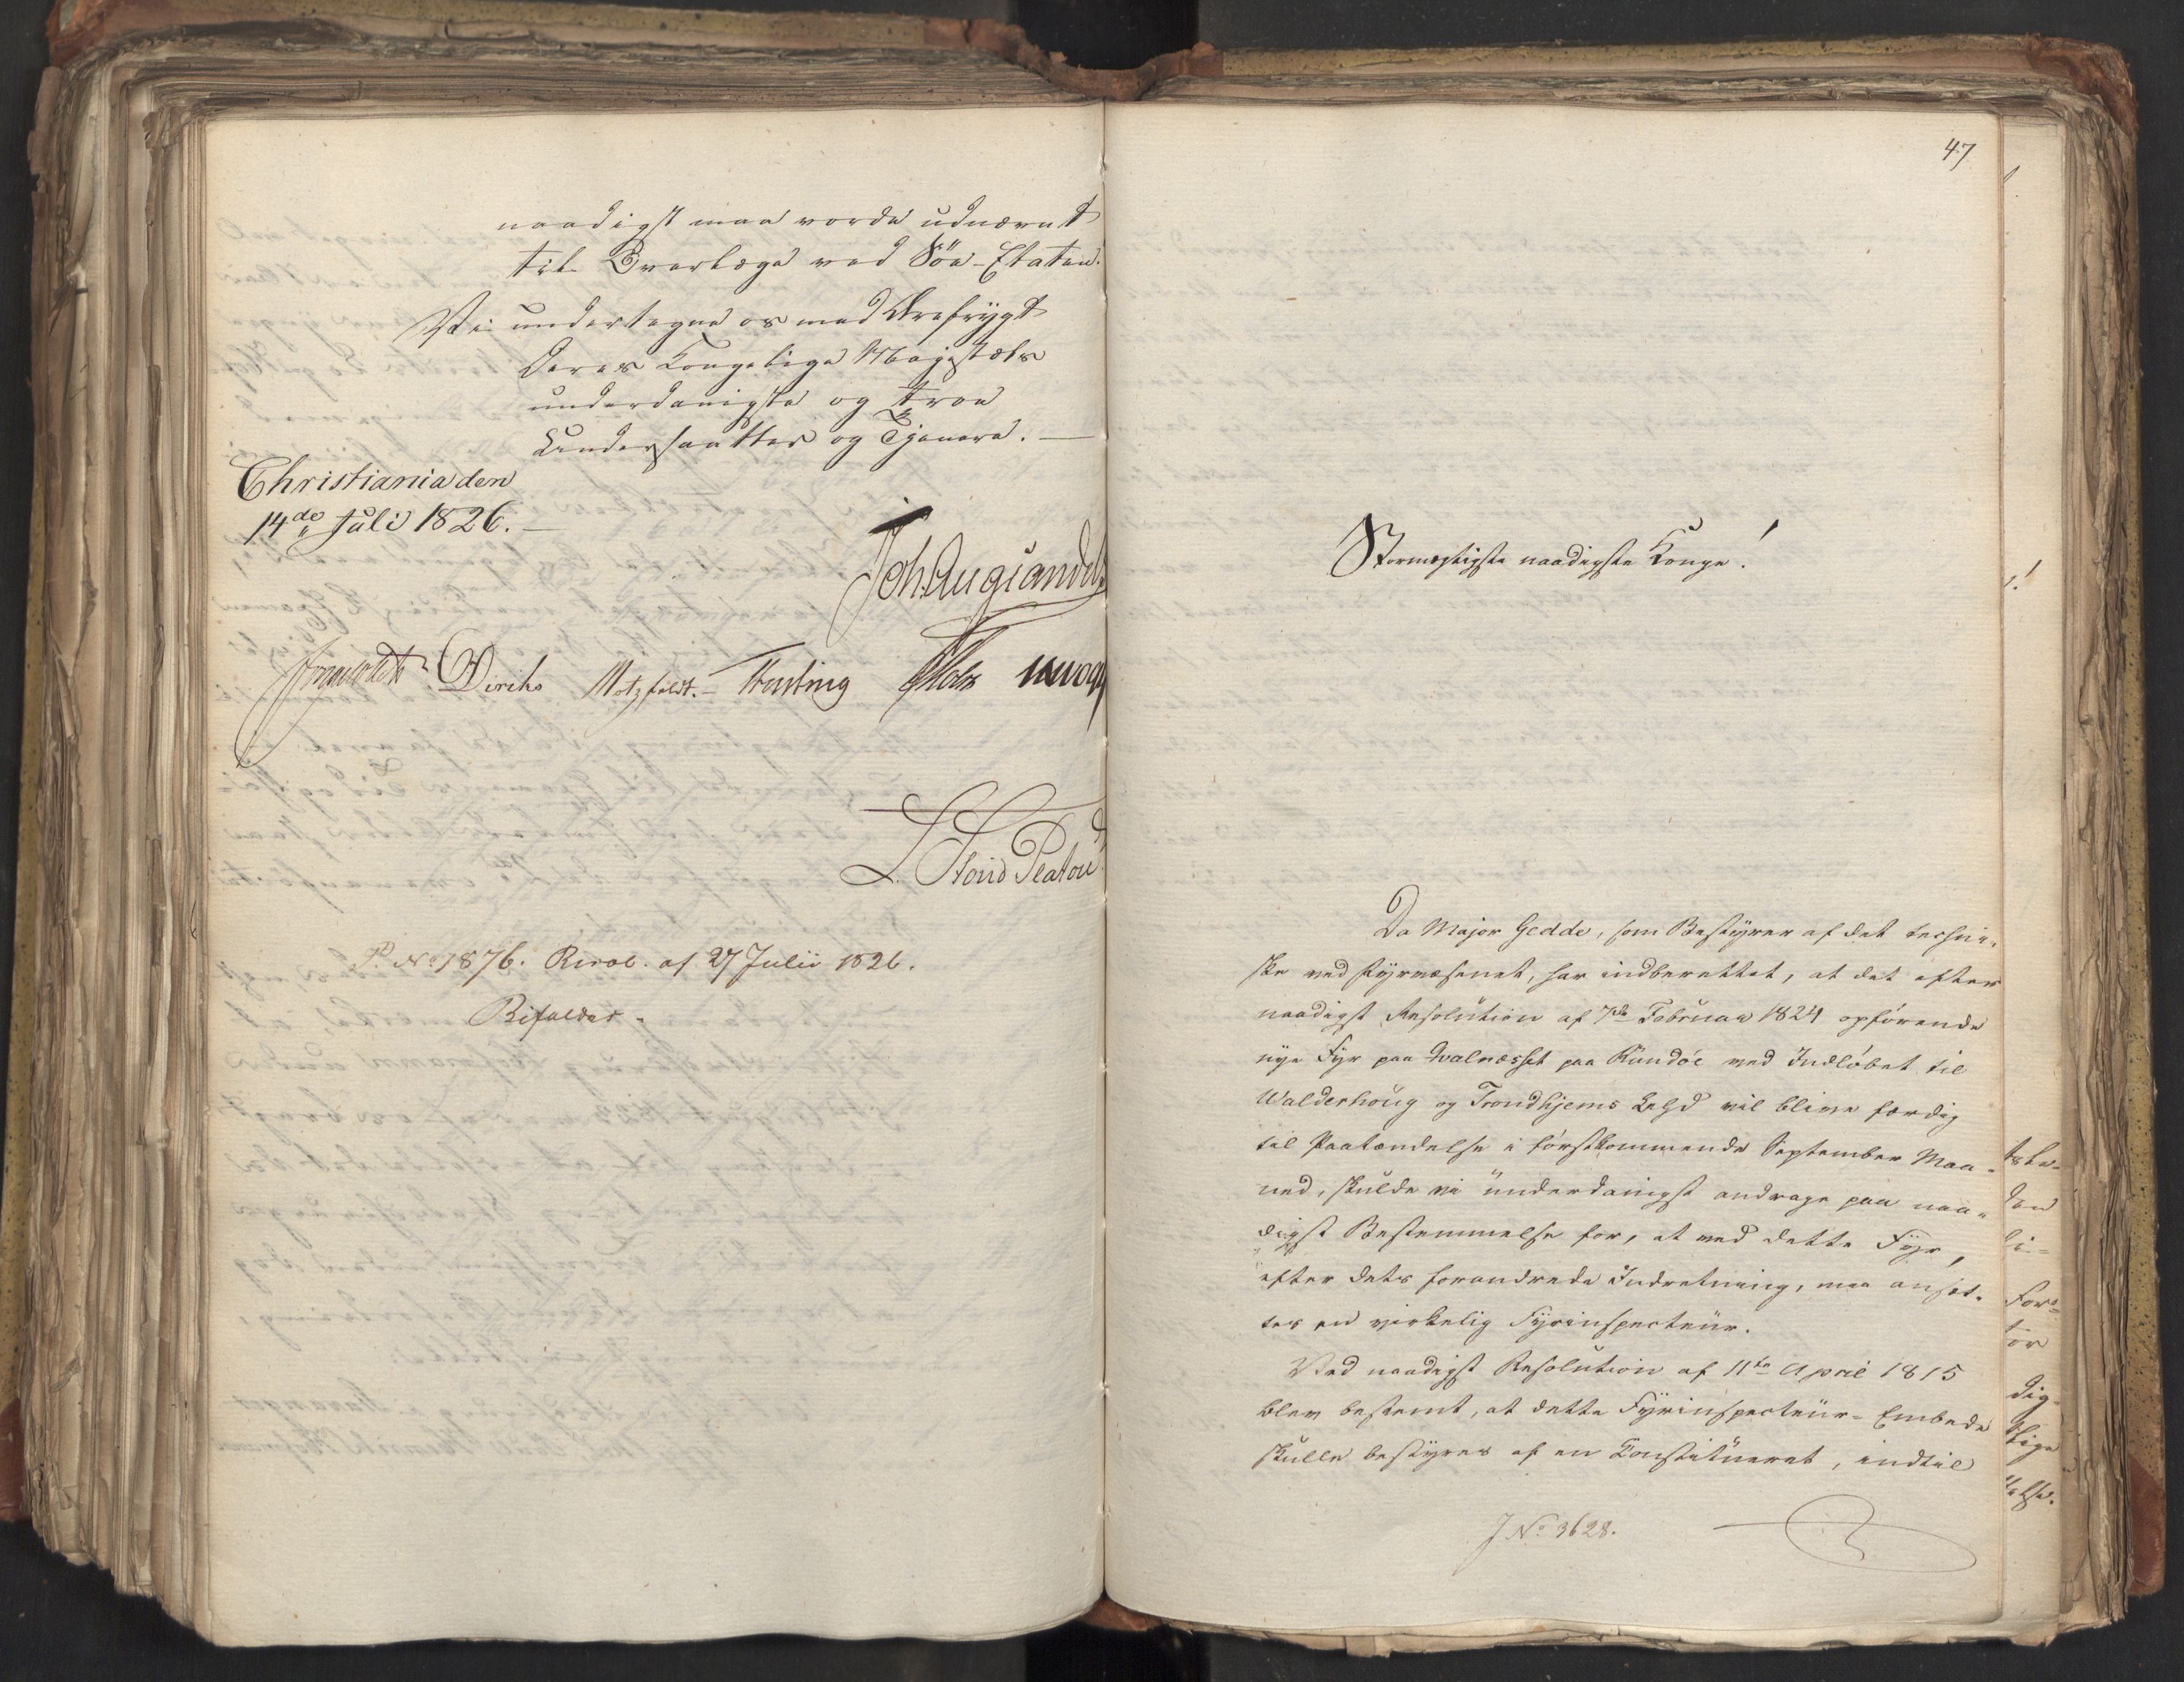 naadigst maa vorde udnævnt
til Overlæge ved Söe-Etaten.
Vi undertegne os med Ærefrygt
Deres Kongelige Majestæts
underdanigste og troe
Undersaatter og Tjenere. —
Christiania den
14de Juli 1826. —
Joh. Aug. Sandels
Diriks Motzfeldt. Fasting
L. Stoud Platou
P. No 1876. Resol. af 27 Julii 1826.
Bifaldes.
47
Stormægtigste naadigste Konge!
Da Major Gedde, som Bestyrer af det techni-
ske ved Fyrvæsenet, har indberettet, at det efter
naadigst Resolution af 7de Februar 1824 opförende
nye Fyr paa Qvalnæsset paa Rundöe ved Indlöbet til
Walderhoug og Trondhjems Leed vil blive færdig
til Paatændelse i förstkommende September Maa-
ned, skulde vi underdanigst andrage paa naa-
digst Bestemmelse for, at ved dette Fyr,
efter dets forandrede Indretning, maa ansæt-
tes en virkelig Fyrinspecteur.
Ved naadigst Resolution af 11te April 1815
blev bestemt, at dette Fyrinspecteur-Embede
skulle bestyres af en Constitueret, indtil
J No 3628.